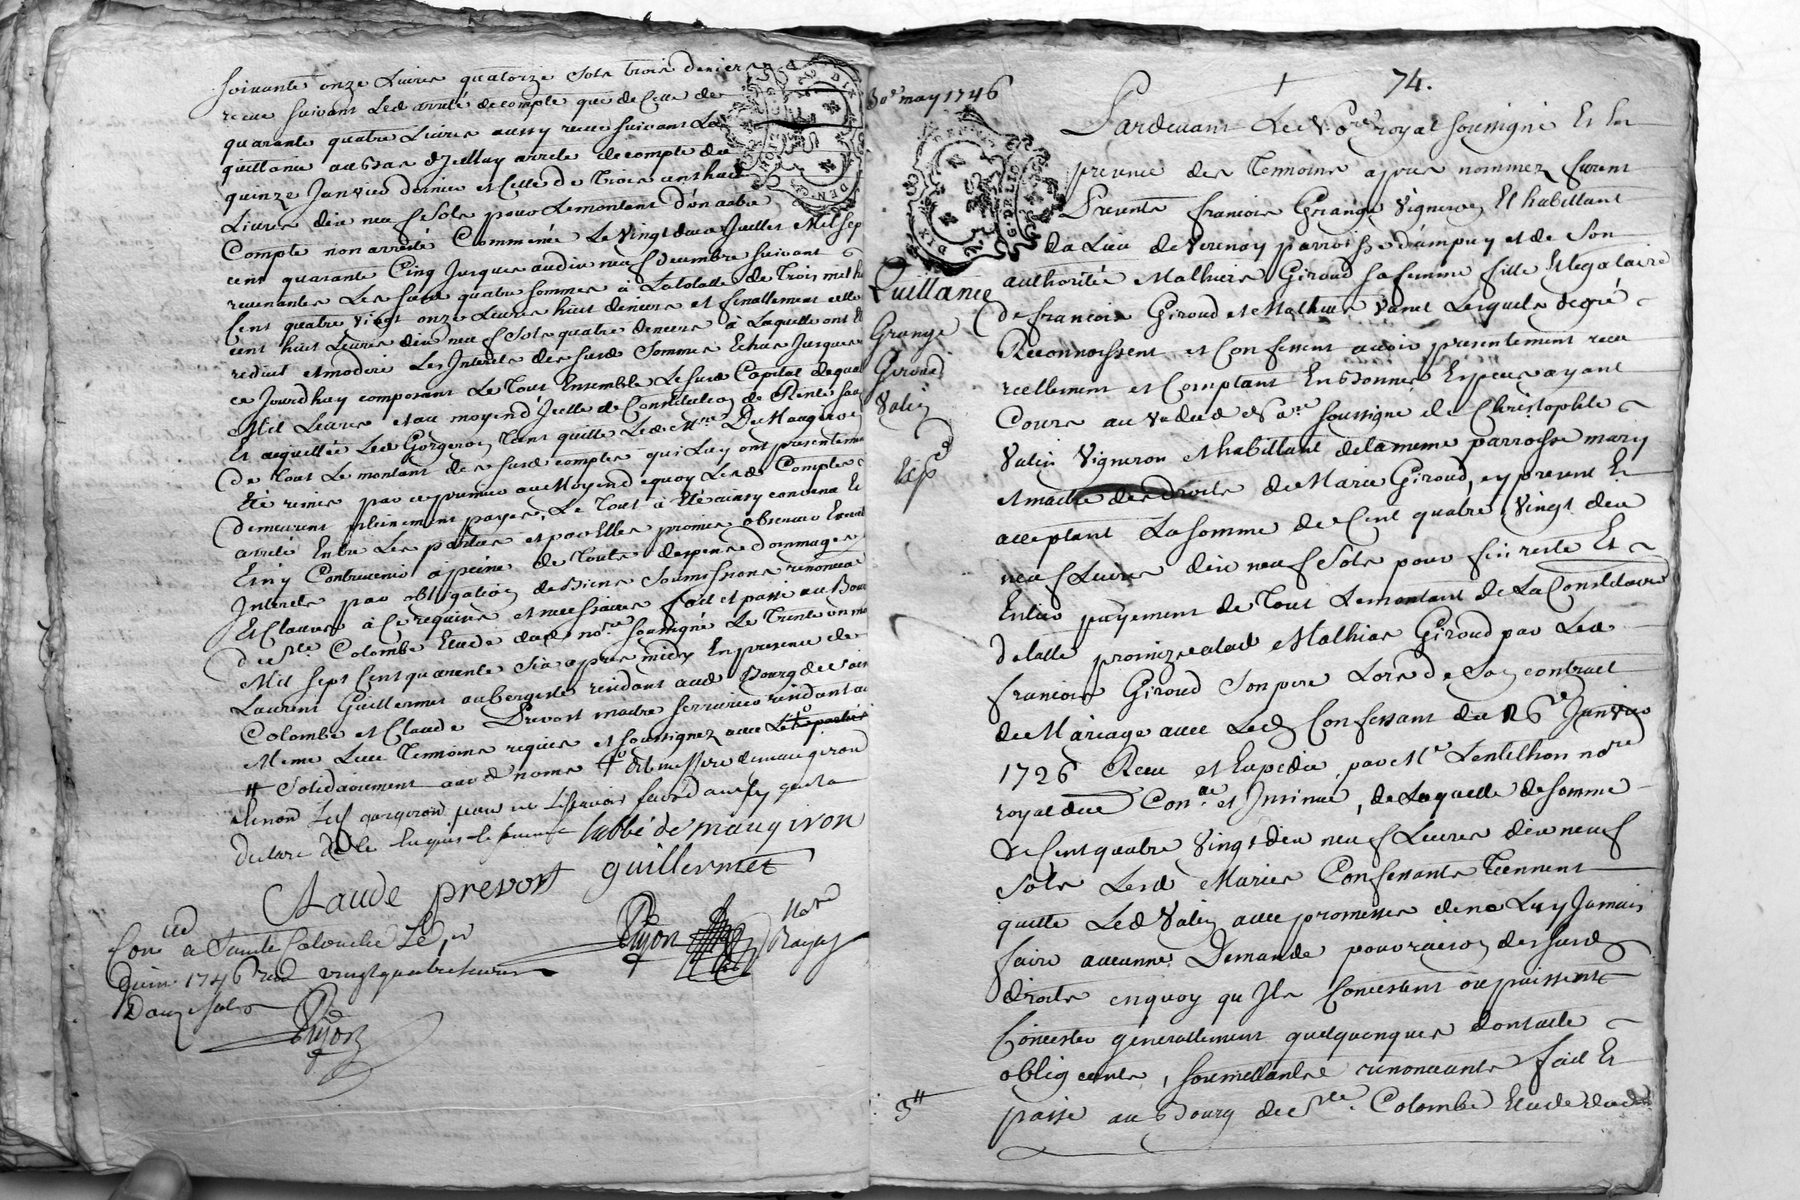 soixante onze Livres quatorze sols trois deniers
recue suivant Led arreté de compte que de Celle de
quarante quatre Livres aussy recue suivant La
quittance au bas d'Jcelluy arreté de compte du
quinze Janvier dernier et Celle de Trois cent huit
Livres dix neuf Sols pour Le montant d'un autre
Compte non arreté Commencé Le Vingt deux Juillet Mil sep
cent quarante Cinq Jusques au dix neuf decembre suivant
revenantes Les susd quatre sommes à La totalle de Trois mil h
Cent quatre vingt onze Livres huit deniers et finallement celle
cent huit Livres dix neuf Sols quatre deniers à Laquelle ont
reduit et moderé Les Interets des susd Sommes Echus Jusques
ce Jourdhuy composant Le Tout Ensemble Le susd Capital de quat
Mil Livres et au moyen d'Jcelle de Constitution de Rente sau
Et acquittée Led Gorgeron Tient quitte Led Mre De Maugeron
De Tout Le montant des susd comptes qui Luy ont presentem
Eté remis par ce premier au Moyend equoy Lesd Comptes
demeurent pleinement payés, Le Tout à Eté ainsy convenu Et
arreté Entre Les parties et par Elles promis observer Execu
Et n'y Contrevenir a peine de Touts depens dommages
Interets par obligation de Biens Soumissions renoncia
Et Clauses à Ce requises et necessaires fait et passé au Bour
de Ste Colombe Etude dud nore soussigné Le Trente un may
Mil sept Cent quarante Six apres midy En presence de
Laurent Guillermet aubergiste residant aud Bourg de Sain
Colombe et Claude Prevost maitre serrurier residant au
Meme Lieu Temoins requis et soussignez avec
# Solidairement aux d noms
et non Led gorgeron pour ne
declaré de le
l'abbé de maugiron
Claude prevost guillermet
Pijon nore Royal
Con lled a Sainte Colombe Le 1er
Juin 1746 red vingt quatre livres
Douze sols
Pijon
74.
30e may 1746
Pardevant Le Nore royal soussigné Et En
presence des Temoins apres nommez furent
Presents françois Grange Vigneron Et habittant
da Lieu de Verenay parroisse d'ampuy et de Son
authorité Mathieie Giroud sa femme fille Et legataire
de françois Giroud et Mathieie Vanel Lesquels de gré
Reconnoissent et Confessent avoir presentement receu
reellement et Comptant En bonnes Especes ayant
Cours au Vu dud Nore soussigné de Christophle
Valin Vigneron Et habittant de la meme parroisse mary
et maitre des droits de Marie Giroud, cy present Et
acceptant La somme de Cent quatre Vingt dix
neuf Livres dix neuf Sols pour fin reste Et
Entier payement de Tout Le montant de La Constitution
dotalle promize alad Mathieie Giroud par Led
françois Giroud Son pere Lors de Son contract
de Mariage avec Led Confessant du 26e Janvier
1726 Receu et Expedié par Me Lentilhon nore
royal due Conlle et Jnsinué, de Laquelle de somme
de Cent quatre Vingt dix neuf Livres dix neuf
Sols Lesd Mariés Confessants Tiennent
quitte Led Valin avec promesse de ne Luy Jamais
faire aucunne Demande pour raison des susd
droits en quoy qu'Jls Consistent ou puissent
Consister generallement quelquonques dont acte
obligeants, soumettants renonceants fait Et
passé au Bourg de Ste Colombe Etude dud
Quittance
Grange
Giroud
Valin
Exp
3#